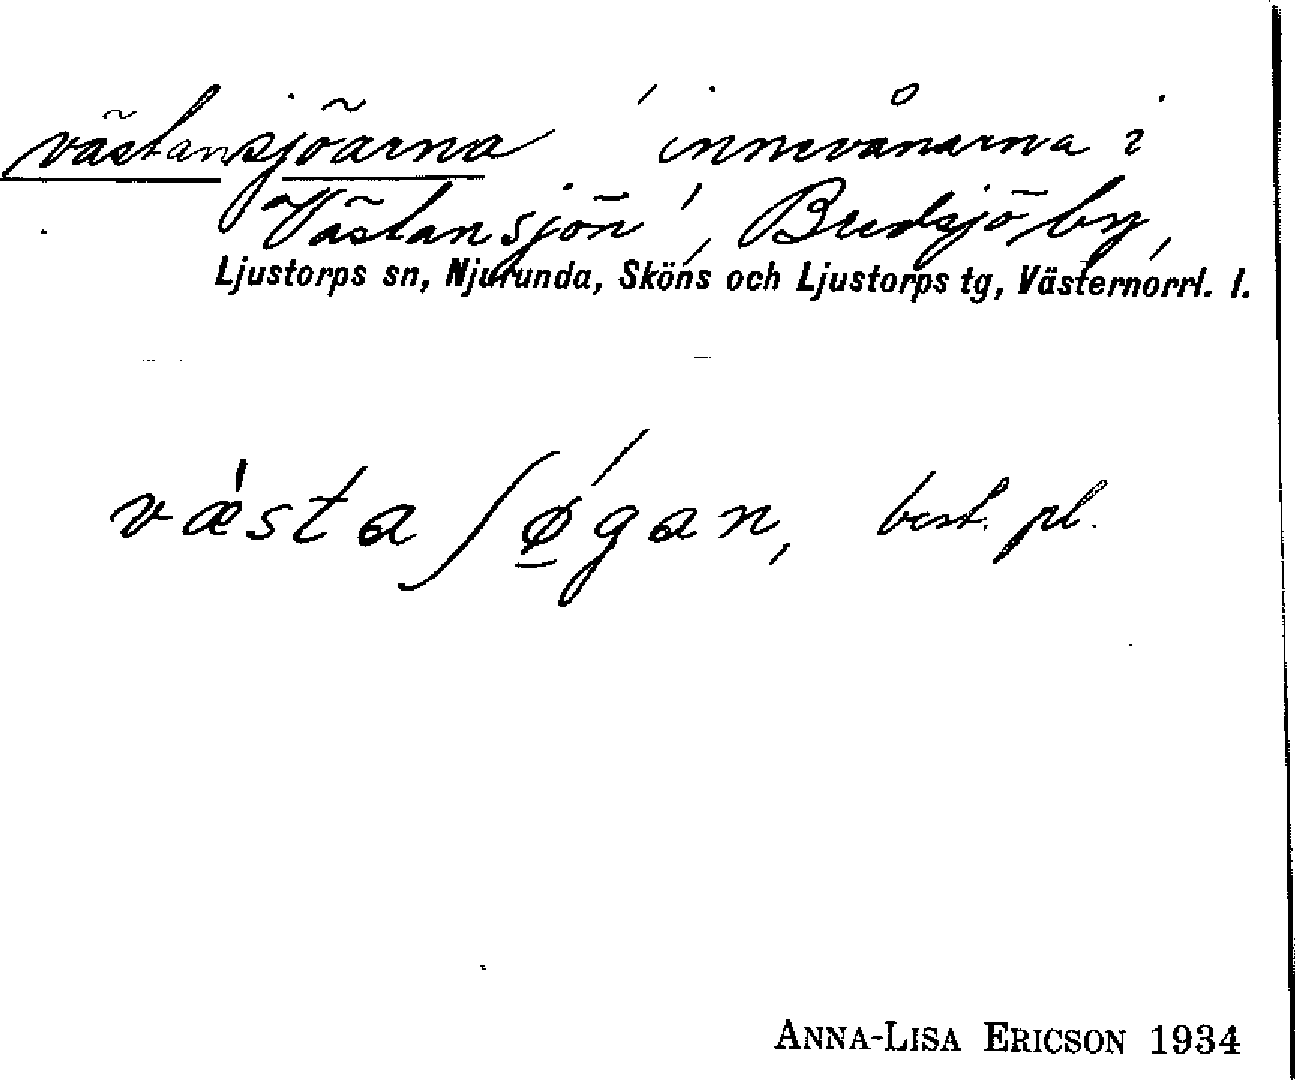 västansjöarna 'innevånarna i
Västansjön', Bredsjö by,
Ljustorps sn, Njurunda, Sköns och Ljustorps tg, Västernorrl. l.
væ̍sta ʃǿ̠gan, best. pl.
ANNA-LISA ERICSON 1934